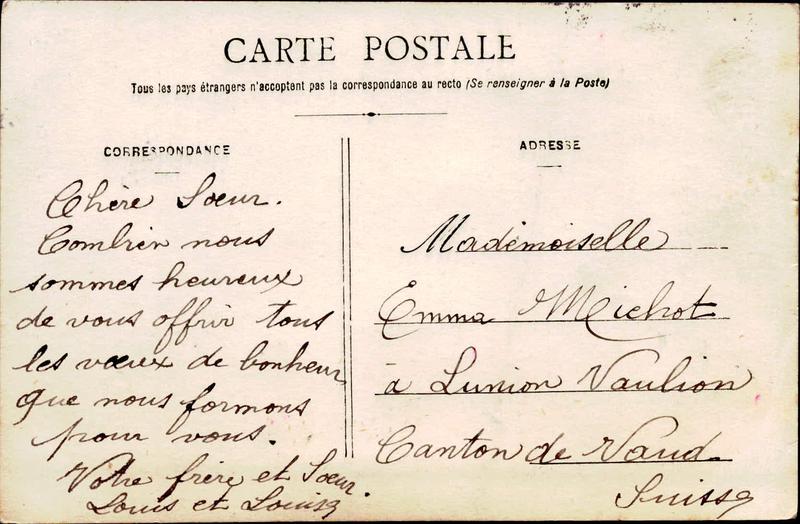 CARTE POSTALE
Tous les pays étrangers n'acceptent pas la correspondance au recto (Se renseigner à la Poste)
CORRESPONDANCE
Chère Sœur.
Combien nous
sommes heureux
de vous offrir tous
les vœux de bonheur
que nous formons
pour vous.
Votre frère et Sœur.
Louis et Louise
ADRESSE
Mademoiselle
Emma Michot
à Lunion Vaulion
Canton de Vaud
Suisse